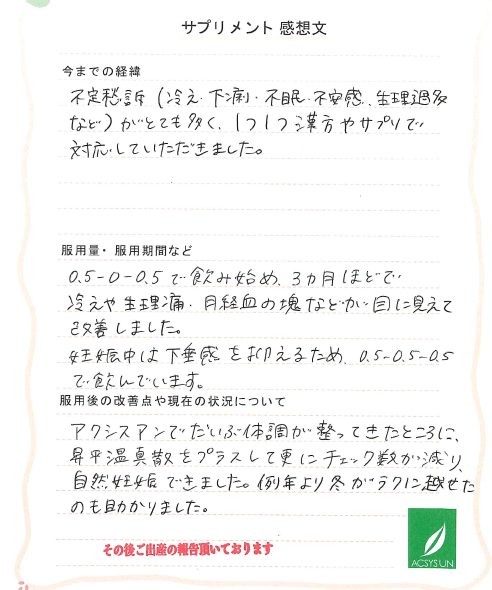 サプリメント 感想文
今までの経緯
不定愁訴（冷え・下痢・不眠・不安感、生理過多
など）がとても多く、1つ1つ漢方やサプリで
対応していただきました。
服用量・服用期間など
0.5-0-0.5で飲み始め、3ヵ月ほどで
冷えや生理痛・月経血の塊などが目に見えて
改善しました。
妊娠中は下垂感を抑えるため、0.5-0.5-0.5
で飲んでいます。
服用後の改善点や現在の状況について
アクシスアンでだいぶ体調が整ってきたところに、
昇平温真散をプラスして更にチェック数が減り、
自然妊娠できました。例年より冬がラクに越せた
のも助かりました。
その後ご出産の報告頂いております
ACSYS UN